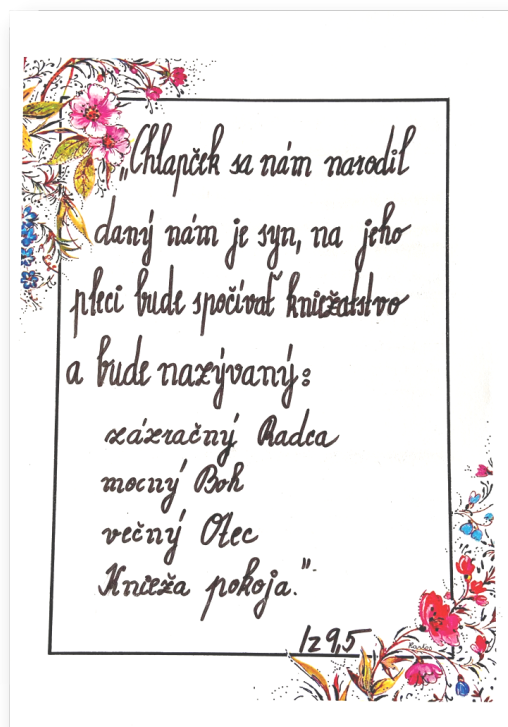 „Chlapček sa nám narodil
daný nám je syn, na jeho
pleci bude spočívať kniežatstvo
a bude nazývaný:
zázračný Radca
mocný Boh
večný Otec
Knieža pokoja."
Iz 9,5